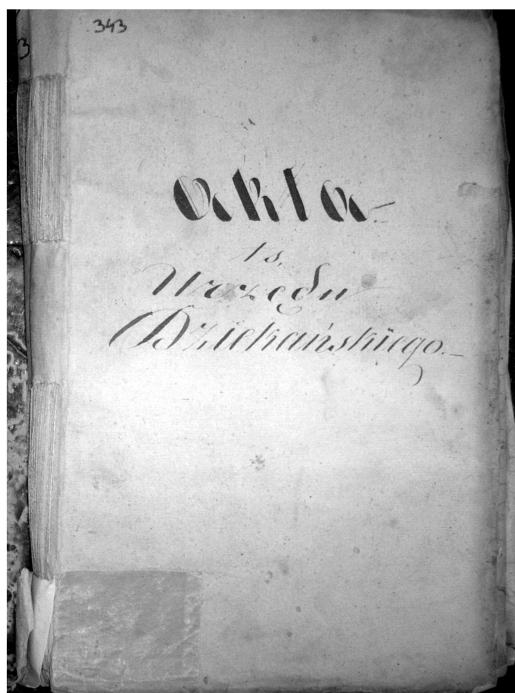 343
3
Akta
ts.
Urzędu
Dziekańskiego